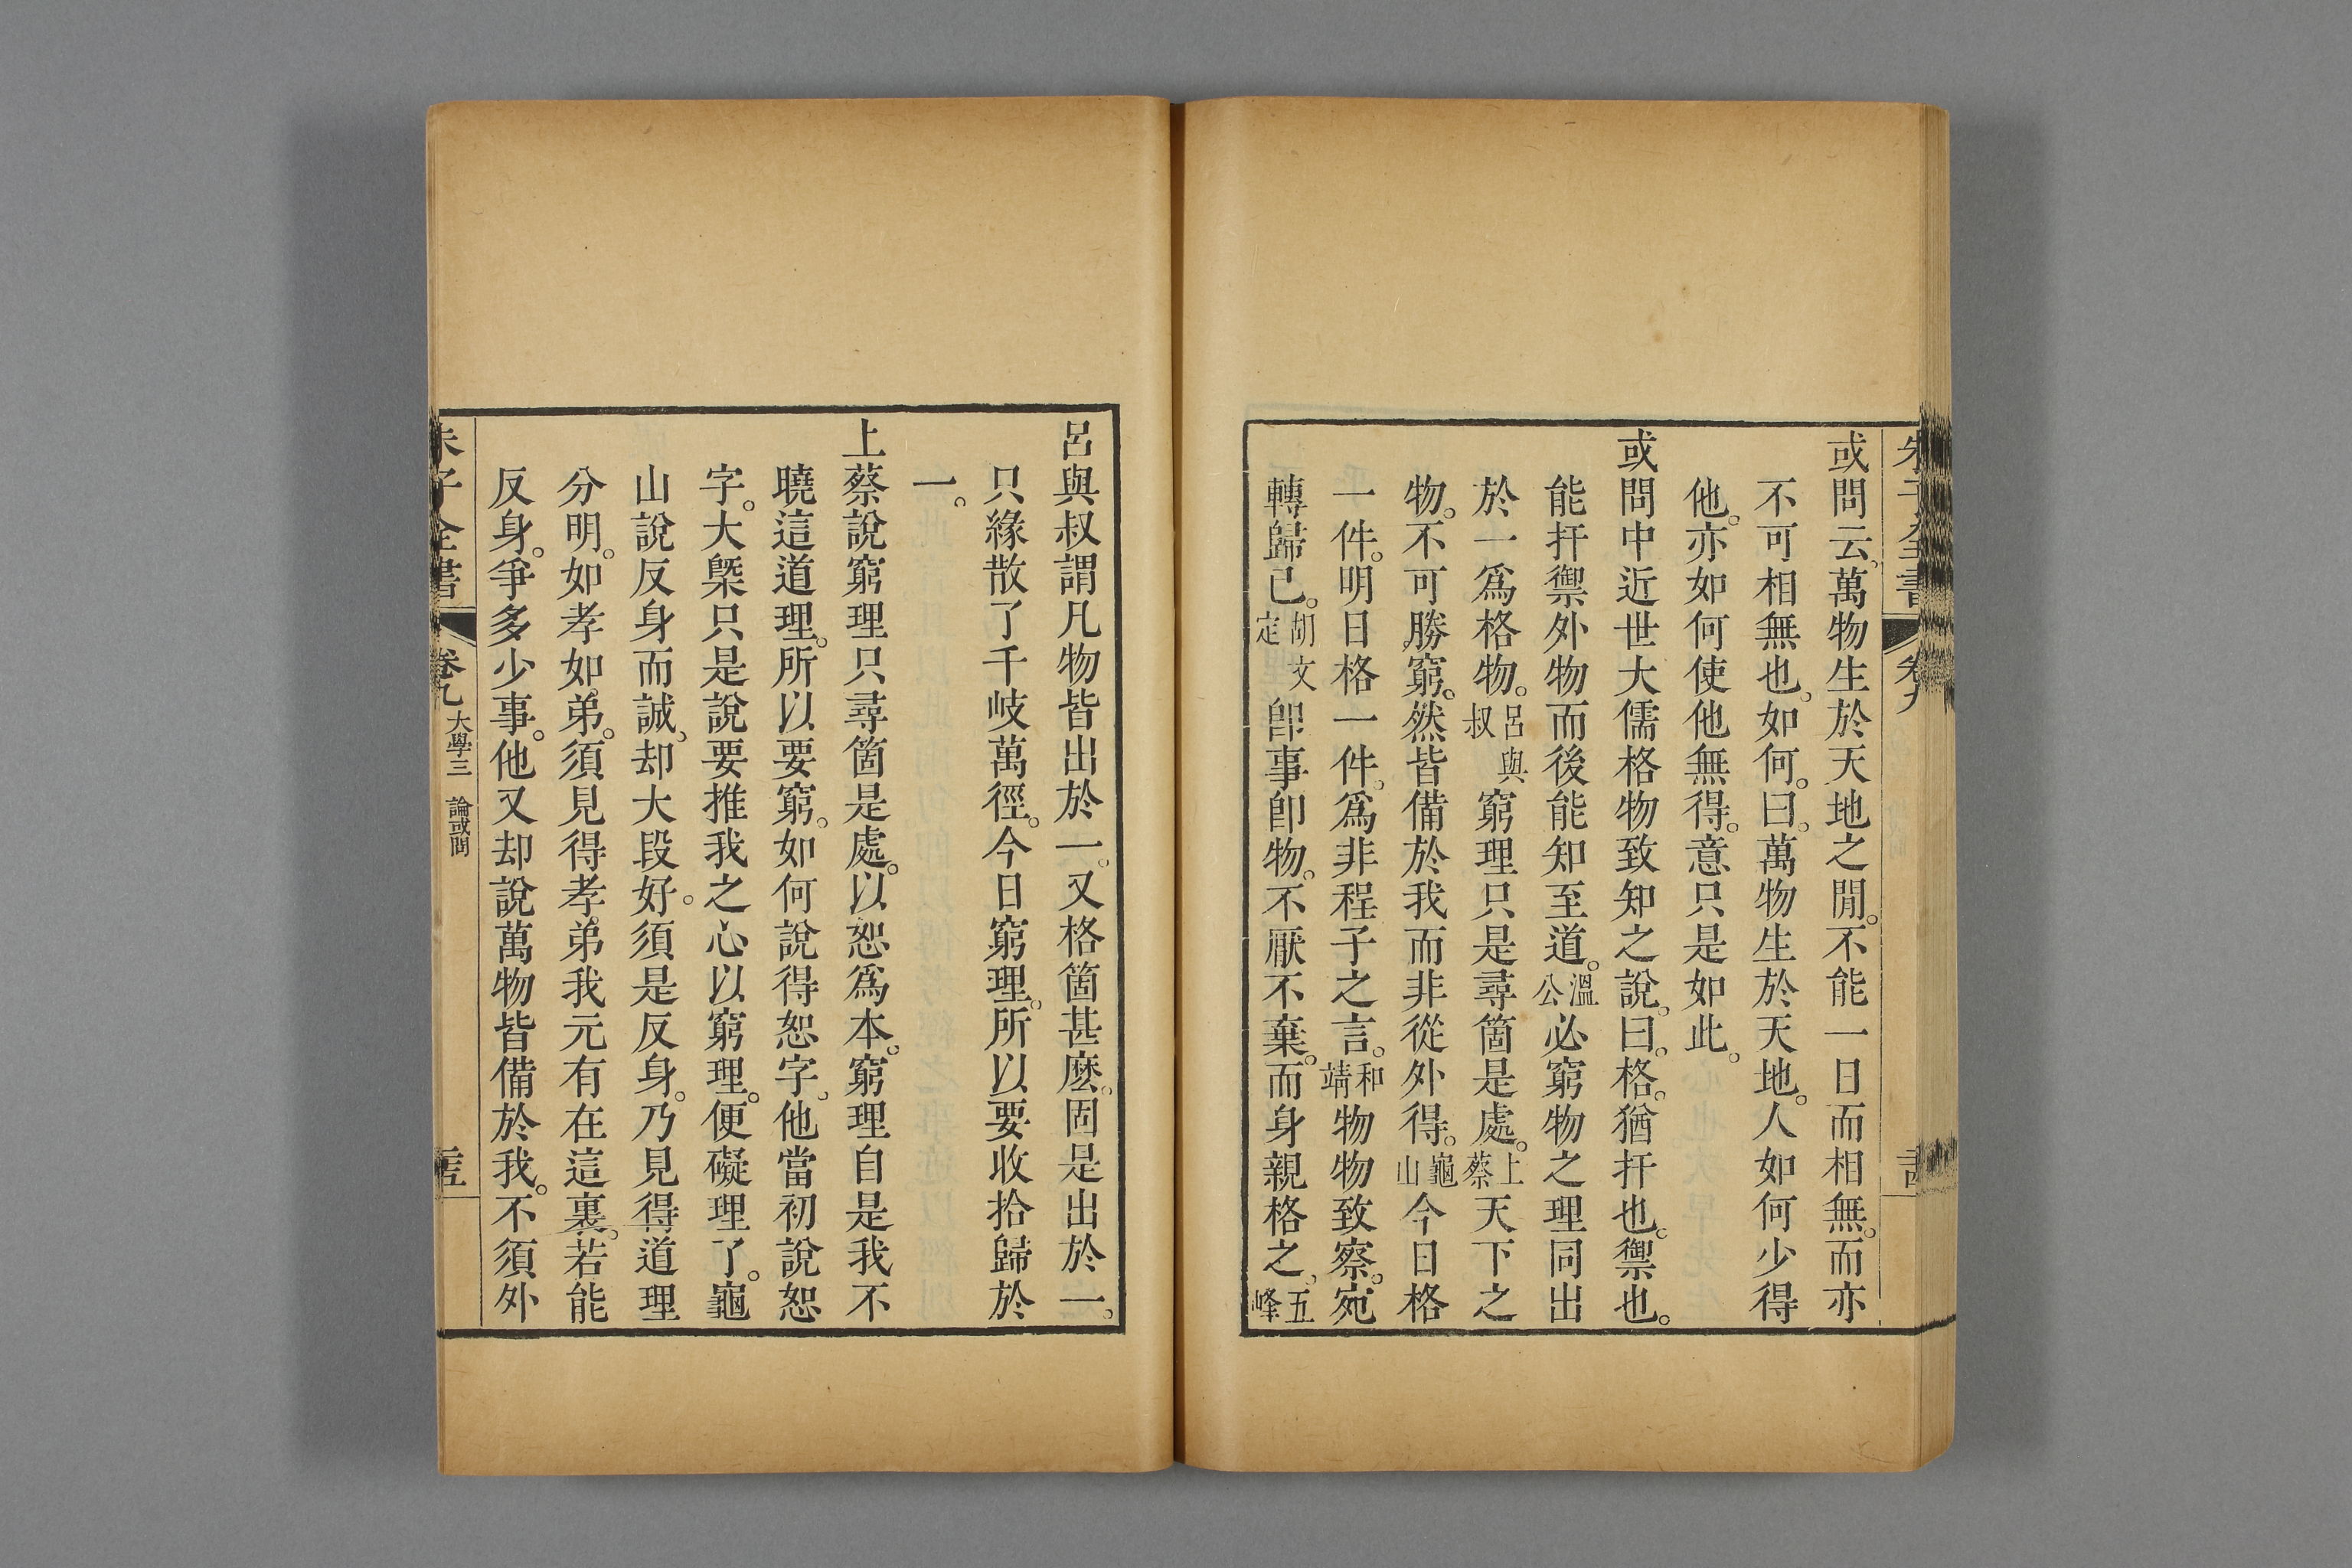 朱子全書 卷九
或問云萬物生於天地之閒。不能一日而相無。而亦
不可相無也。如何。曰。萬物生於天地。人如何少得
他。亦如何使他無得。意只是如此。
或問中近世大儒格物致知之說。曰。格。猶扞也。禦也。
能扞禦外物而後能知至道。溫公必窮物之理同出
於一爲格物。呂與叔窮理只是尋箇是處。上蔡天下之
物。不可勝窮。然皆備於我而非從外得。龜山今日格
一件。明日格一件。爲非程子之言。和靖物物致察。宛
轉歸己。胡文定卽事卽物。不厭不棄。而身親格之。五峰
呂與叔謂凡物皆出於一。又格箇甚麽。固是出於一。
只緣散了千岐萬徑。今日窮理。所以要收拾歸於
一。
上蔡說窮理只尋箇是處。以恕爲本。窮理自是我不
曉這道理。所以要窮。如何說得恕字。他當初說恕
字。大槩只是說要推我之心以窮理。便礙理了。龜
山說反身而誠。却大段好。須是反身。乃見得道理
分明。如孝如弟。須見得孝弟我元有在這裏。若能
反身。爭多少事。他又却說萬物皆備於我。不須外
朱子全書 卷九 大學三 論或問